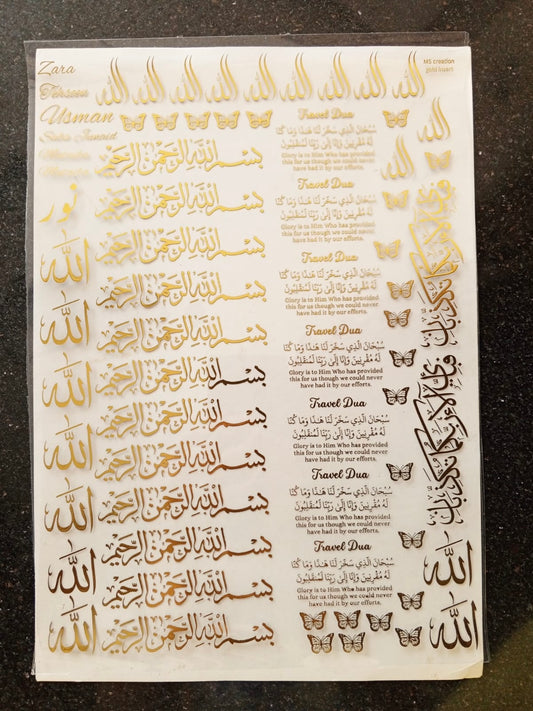 Zara
Tehseen
Usman
Saba Junaid
نور
MS creation
gold kuart
الله الله الله الله الله الله الله الله الله
الله
الله
الله
الله
الله
الله
الله
الله
الله
بسم الله الرحمن الرحيم
بسم الله الرحمن الرحيم
بسم الله الرحمن الرحيم
بسم الله الرحمن الرحيم
بسم الله الرحمن الرحيم
بسم الله الرحمن الرحيم
بسم الله الرحمن الرحيم
بسم الله الرحمن الرحيم
بسم الله الرحمن الرحيم
بسم الله الرحمن الرحيم
بسم الله الرحمن الرحيم
بسم الله الرحمن الرحيم
Travel Dua
سُبْحَانَ الَّذِي سَخَّرَ لَنَا هَذَا وَمَا كُنَّا
لَهُ مُقْرِنِينَ وَإِنَّا إِلَى رَبِّنَا لَمُنْقَلِبُونَ
Glory is to Him Who has provided
this for us though we could never
have had it by our efforts.
Travel Dua
سُبْحَانَ الَّذِي سَخَّرَ لَنَا هَذَا وَمَا كُنَّا
لَهُ مُقْرِنِينَ وَإِنَّا إِلَى رَبِّنَا لَمُنْقَلِبُونَ
Glory is to Him Who has provided
this for us though we could never
have had it by our efforts.
Travel Dua
سُبْحَانَ الَّذِي سَخَّرَ لَنَا هَذَا وَمَا كُنَّا
لَهُ مُقْرِنِينَ وَإِنَّا إِلَى رَبِّنَا لَمُنْقَلِبُونَ
Glory is to Him Who has provided
this for us though we could never
have had it by our efforts.
Travel Dua
سُبْحَانَ الَّذِي سَخَّرَ لَنَا هَذَا وَمَا كُنَّا
لَهُ مُقْرِنِينَ وَإِنَّا إِلَى رَبِّنَا لَمُنْقَلِبُونَ
Glory is to Him Who has provided
this for us though we could never
have had it by our efforts.
Travel Dua
سُبْحَانَ الَّذِي سَخَّرَ لَنَا هَذَا وَمَا كُنَّا
لَهُ مُقْرِنِينَ وَإِنَّا إِلَى رَبِّنَا لَمُنْقَلِبُونَ
Glory is to Him Who has provided
this for us though we could never
have had it by our efforts.
Travel Dua
سُبْحَانَ الَّذِي سَخَّرَ لَنَا هَذَا وَمَا كُنَّا
لَهُ مُقْرِنِينَ وَإِنَّا إِلَى رَبِّنَا لَمُنْقَلِبُونَ
Glory is to Him Who has provided
this for us though we could never
have had it by our efforts.
Travel Dua
سُبْحَانَ الَّذِي سَخَّرَ لَنَا هَذَا وَمَا كُنَّا
لَهُ مُقْرِنِينَ وَإِنَّا إِلَى رَبِّنَا لَمُنْقَلِبُونَ
Glory is to Him Who has provided
this for us though we could never
have had it by our efforts.
فبأي آلاء ربكما تكذبان
فبأي آلاء ربكما تكذبان
الله
الله